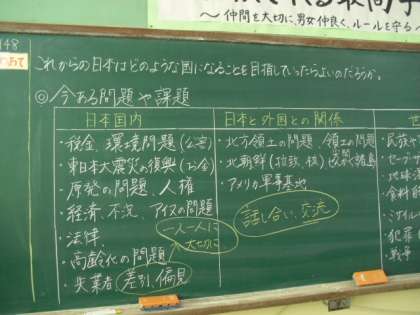 ～仲間を大切に、男女仲良く、ルールを守る～
148
めあて
これからの日本はどのような国になることを目指していったらよいのだろうか。
◎今ある問題や課題
日本国内
・税金、環境問題(公害)
・東日本大震災の復興(お金)
・原発の問題、人権
・経済、不況、アイヌの問題
・法律
一人一人に
大切に
・高齢化の問題
・失業者 差別、偏見
日本と外国との関係
・北方領土の問題、領土の問題
・北朝鮮(拉致、核)
諸島
・アメリカ軍事基地
話し合い、交流
世
・民族や
・セーブ
・地球温
・食料
・ミサイル
・犯罪
・戦争